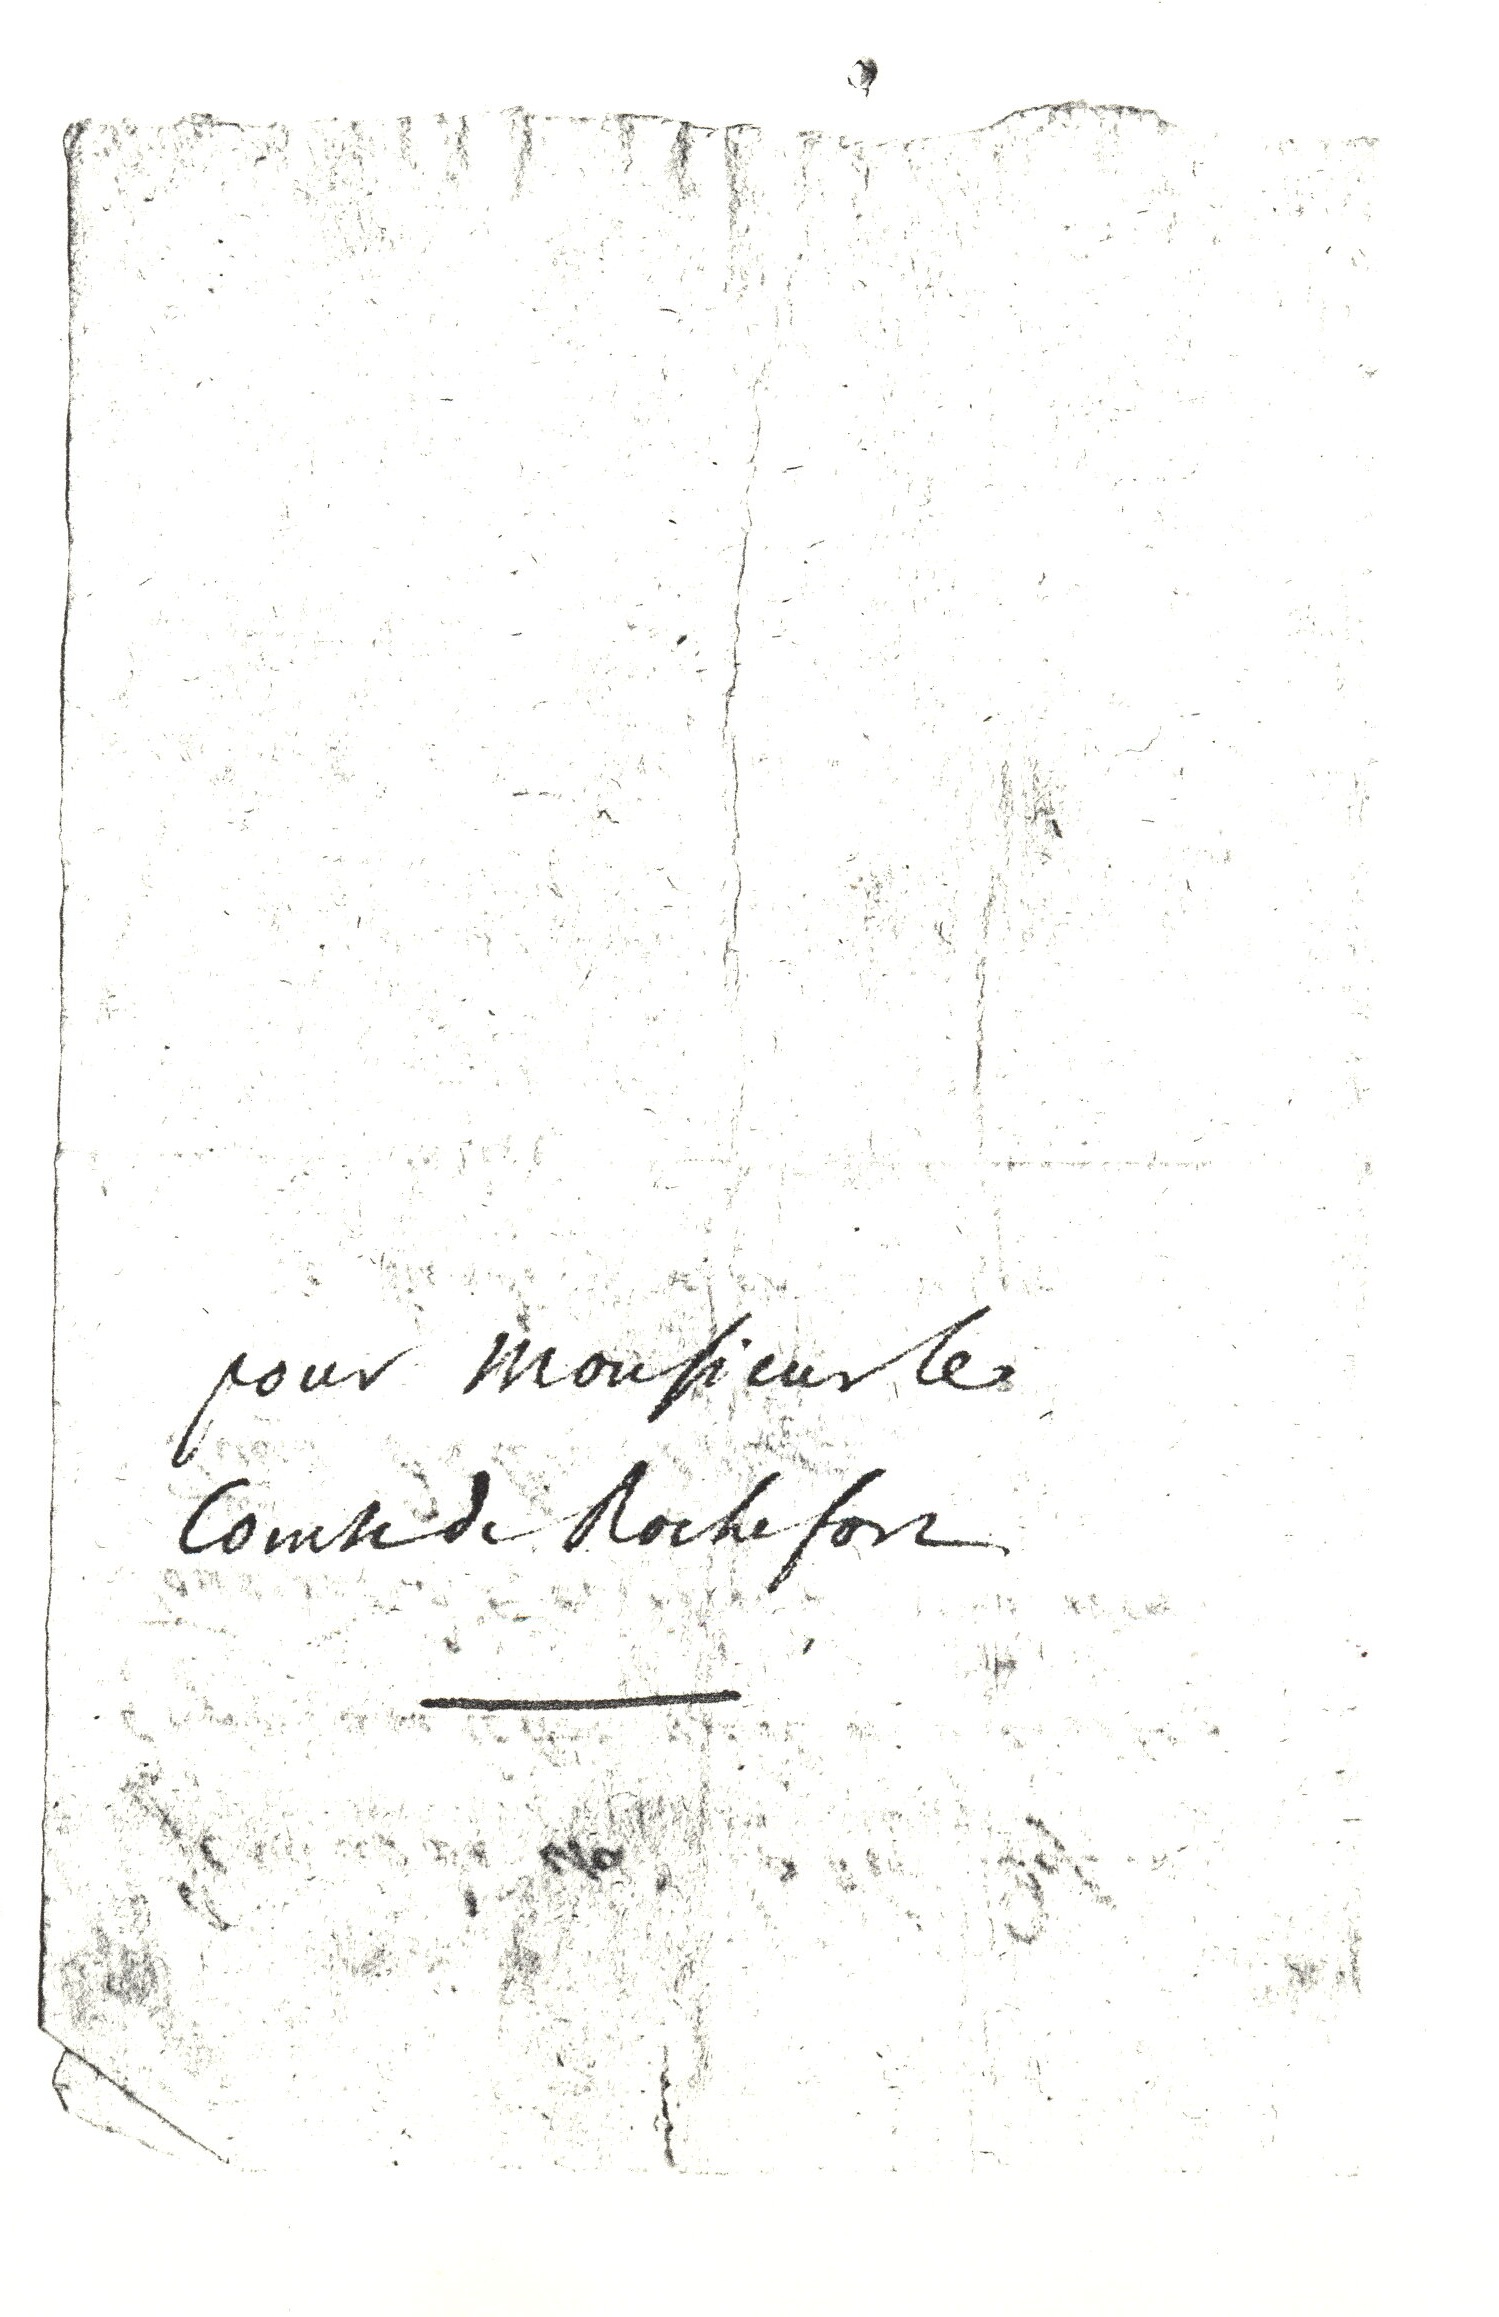 pour Monsieur le
Comte de Rochefort